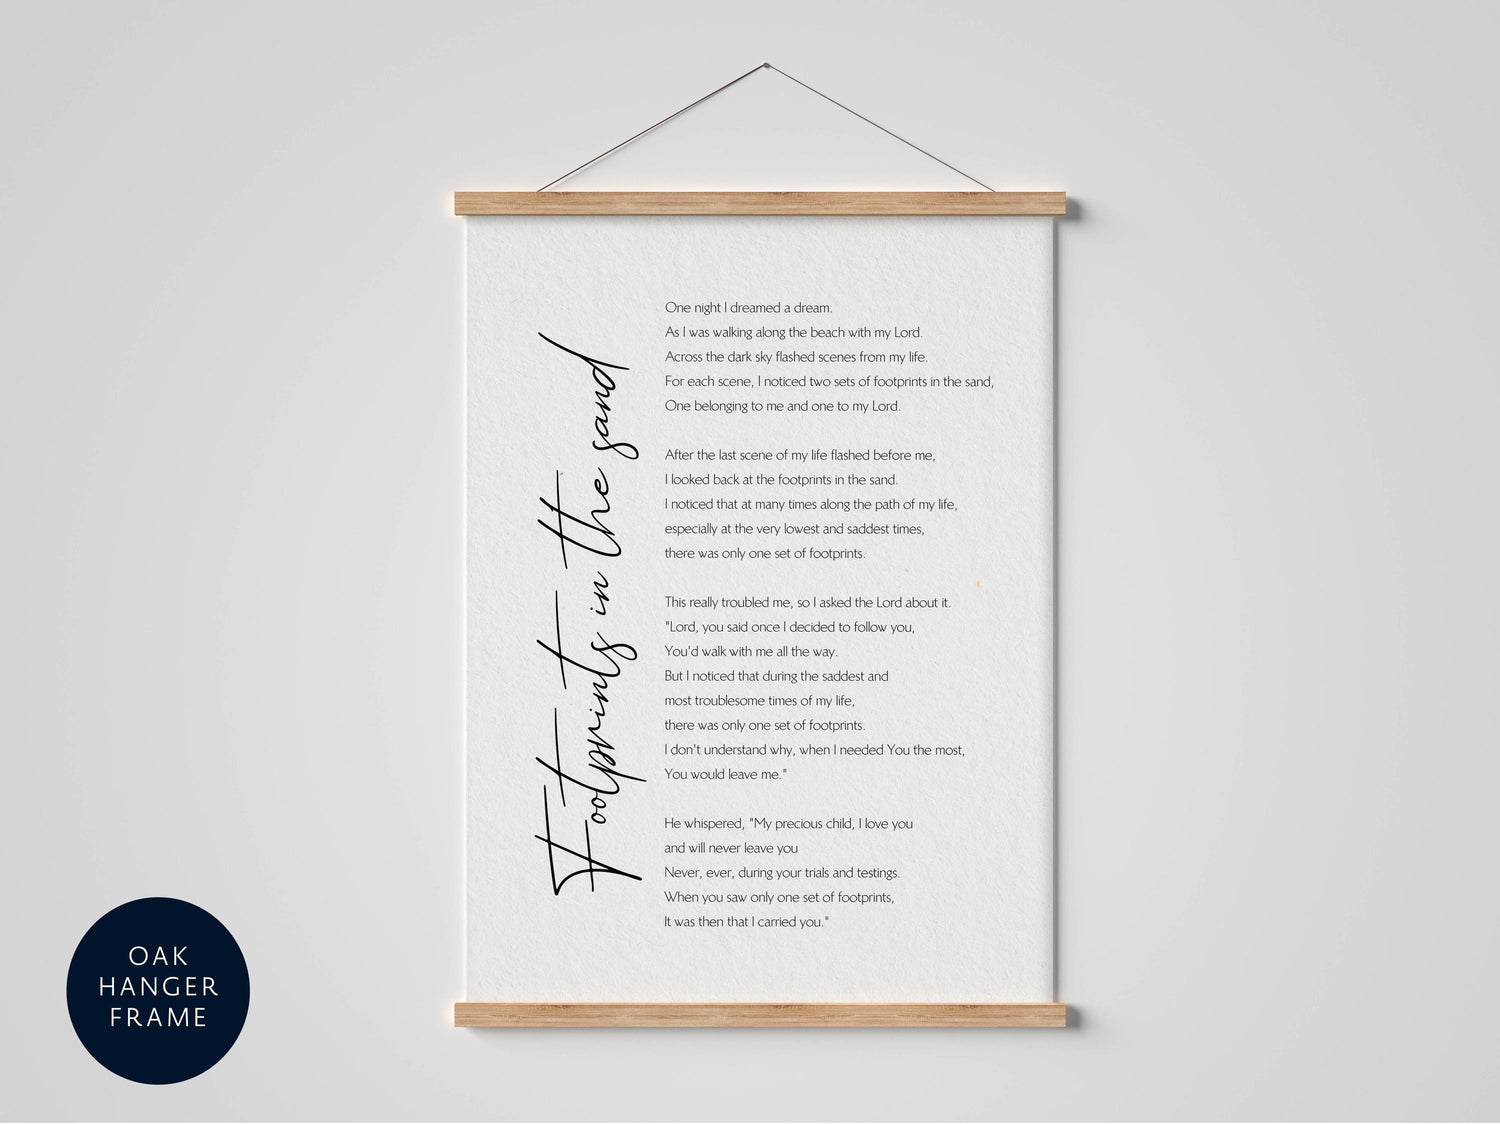 Footprints in the sand
One night I dreamed a dream.
As I was walking along the beach with my Lord.
Across the dark sky flashed scenes from my life.
For each scene, I noticed two sets of footprints in the sand,
One belonging to me and one to my Lord.
After the last scene of my life flashed before me,
I looked back at the footprints in the sand.
I noticed that at many times along the path of my life,
especially at the very lowest and saddest times,
there was only one set of footprints.
This really troubled me, so I asked the Lord about it.
"Lord, you said once I decided to follow you,
You'd walk with me all the way.
But I noticed that during the saddest and
most troublesome times of my life,
there was only one set of footprints.
I don't understand why, when I needed You the most,
You would leave me."
He whispered, "My precious child, I love you
and will never leave you
Never, ever, during your trials and testings.
When you saw only one set of footprints,
It was then that I carried you."
OAK
HANGER
FRAME